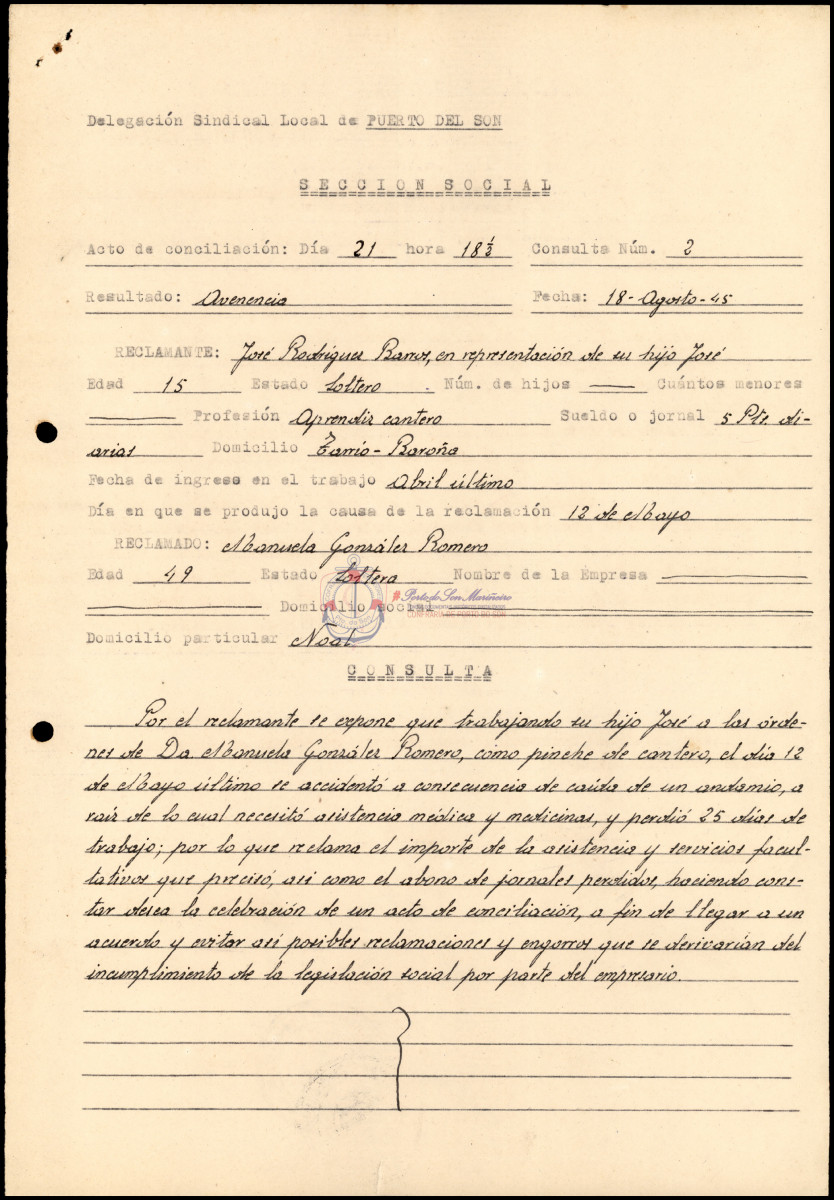 Delegación Sindical Local de PUERTO DEL SON
SECCION SOCIAL
Acto de conciliación: Día 21 hora 18½ Consulta Núm. 2
Resultado: Avenencia Fecha: 18-Agosto-45
RECLAMANTE: José Rodríguez Barros, en representación de su hijo José
Edad 15 Estado soltero. Núm. de hijos —— Cuántos menores
—— Profesión Aprendiz cantero Sueldo o jornal 5 Pts. di-
arias Domicilio Tarrio-Baroña
Fecha de ingreso en el trabajo Abril último
Día en que se produjo la causa de la reclamación 12 de Mayo
RECLAMADO: Manuela González Romero
Edad 49 Estado soltera Nombre de la Empresa ——
—— Domicilio social ——
#PortodoSonMariñeiro
CONFRARÍA DE PORTO DO SON
Domicilio particular Noal
CONSULTA
Por el reclamante se expone que trabajando su hijo José a las órde-
nes de Da. Manuela González Romero, como pinche de cantero, el día 12
de Mayo último se accidentó a consecuencia de caída de un andamio, a
raíz de lo cual necesitó asistencia médica y medicinas, y perdió 25 días de
trabajo; por lo que reclama el importe de la asistencia y servicios facul-
tativos que precisó, así como el abono de jornales perdidos, haciendo cons-
tar desea la celebración de un acto de conciliación, a fin de llegar a un
acuerdo y evitar así posibles reclamaciones y engorros que se derivarían del
incumplimiento de la legislación social por parte del empresario.